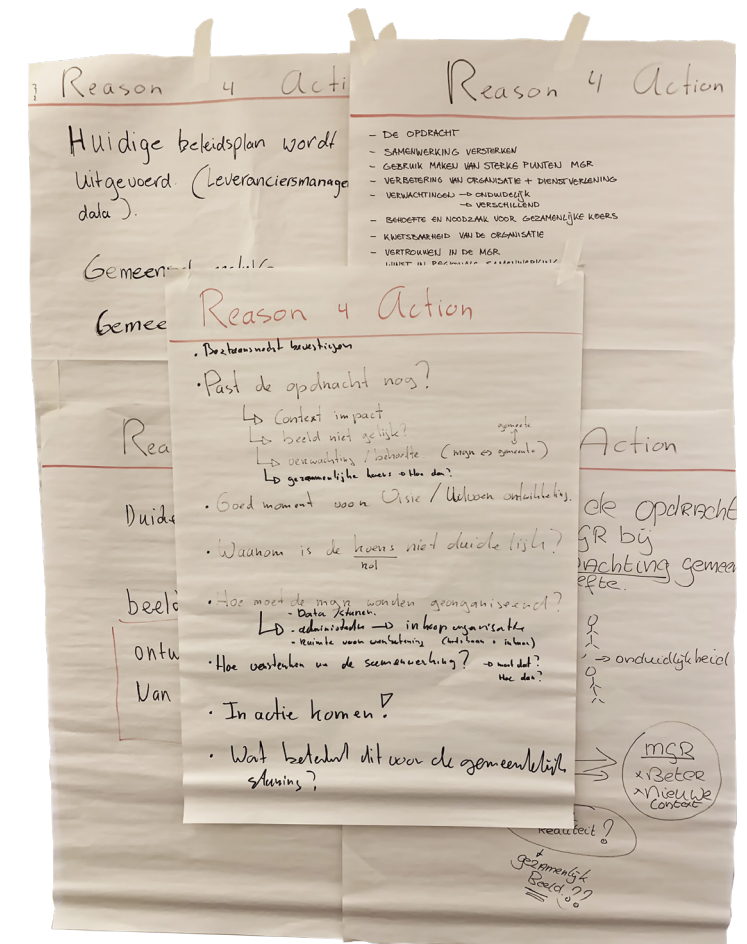 Reason 4 Acti
Huidige beleidsplan wordt
Uitgevoerd. (Leveranciersmanage
data).
Gemeen
Gemee
Reason 4 Action
- DE OPDRACHT
- SAMENWERKING VERSTERKEN
- GEBRUIK MAKEN VAN STERKE PUNTEN MGR
- VERBETERING VAN ORGANISATIE + DIENSTVERLENING
- VERWACHTINGEN → ONDUIDELIJK
→ VERSCHILLEND
- BEHOEFTE EN NOODZAAK VOOR GEZAMENLIJKE KOERS
- KWETSBAARHEID VAN DE ORGANISATIE
- VERTROUWEN IN DE MGR
Reason 4 Action
• Bestaansrecht bevestigen
• Past de opdracht nog?
↳ Context impact
↳ beeld niet gelijk?
gemeente
↳ verwachting / behoefte (mgr ⇔ gemeente)
↳ gezamenlijke koers → Hoe dan?
• Goed moment voor Visie / Uitvoer ontwikkeling.
• Waarom is de koers niet duidelijk?
rol
• Hoe moet de mgr worden georganiseerd?
- Data / sturen.
↳ - administratie → inkooporganisatie
- Ruimte voor verbetering
• Hoe versterken we de samenwerking? → wat dat?
Hoe dan?
• In actie komen!
• Wat betekent dit voor de gemeentelijke
sturing?
Rea
Duide
beeld
ontw
Van
Action
de opdracht
GR bij
achting gemeen
efte.
→ onduidlijkheid
MGR
x Beter
x Nieuwe
context
Realiteit?
gezamenlijk
Beeld.??